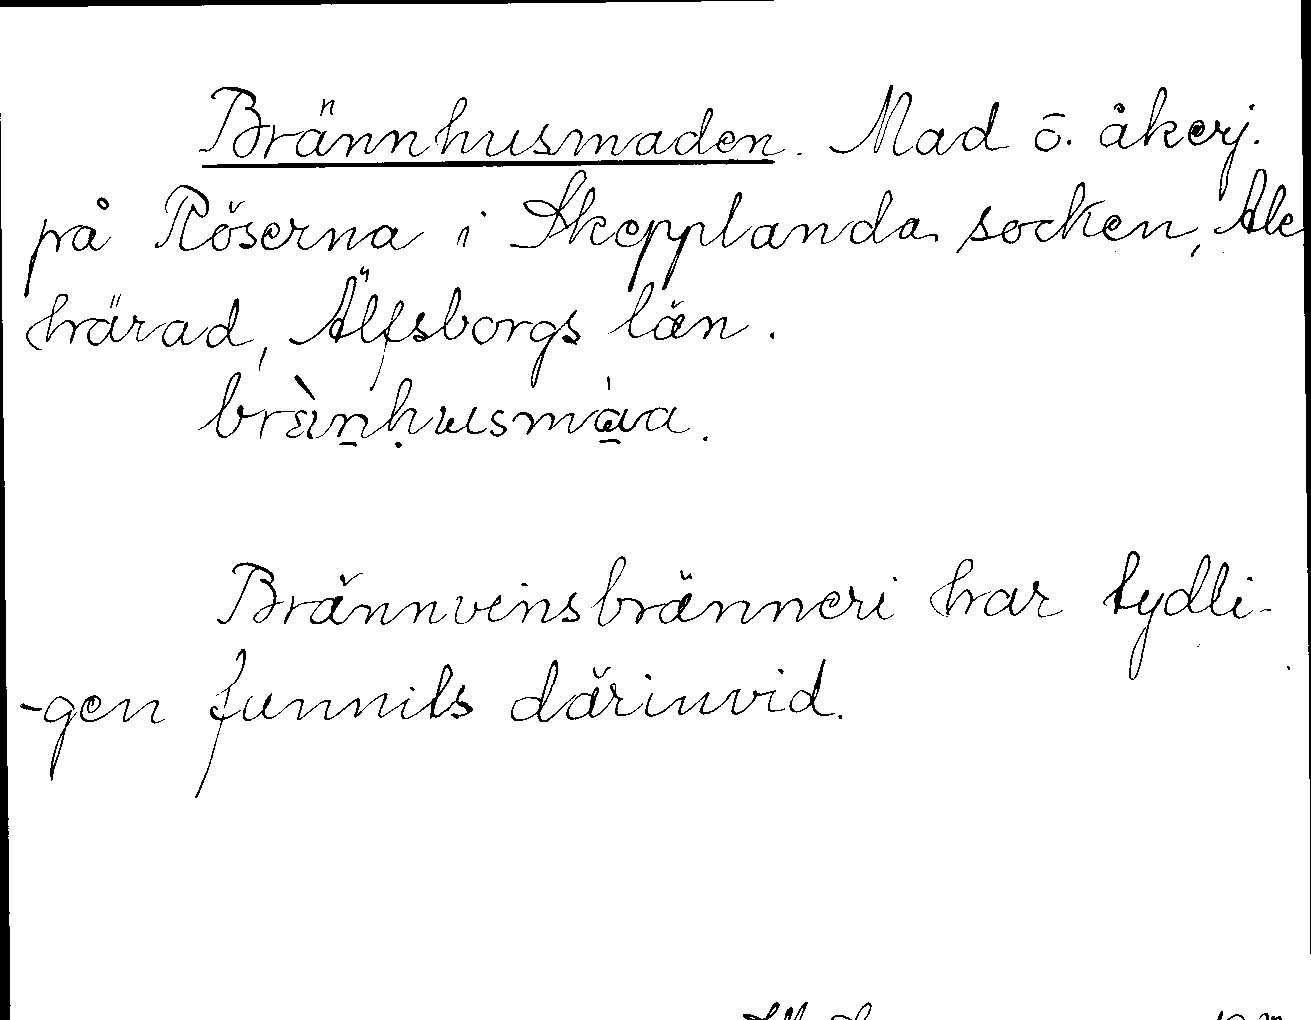 Brännhusmaden. Mad ō. åkerj.
på Röserna i Skepplanda socken, Ale
härad, Älfsborgs län.
brä̀n̠ḥusmá̠a.
Brännvinsbränneri har tydli-
-gen funnits därinvid.